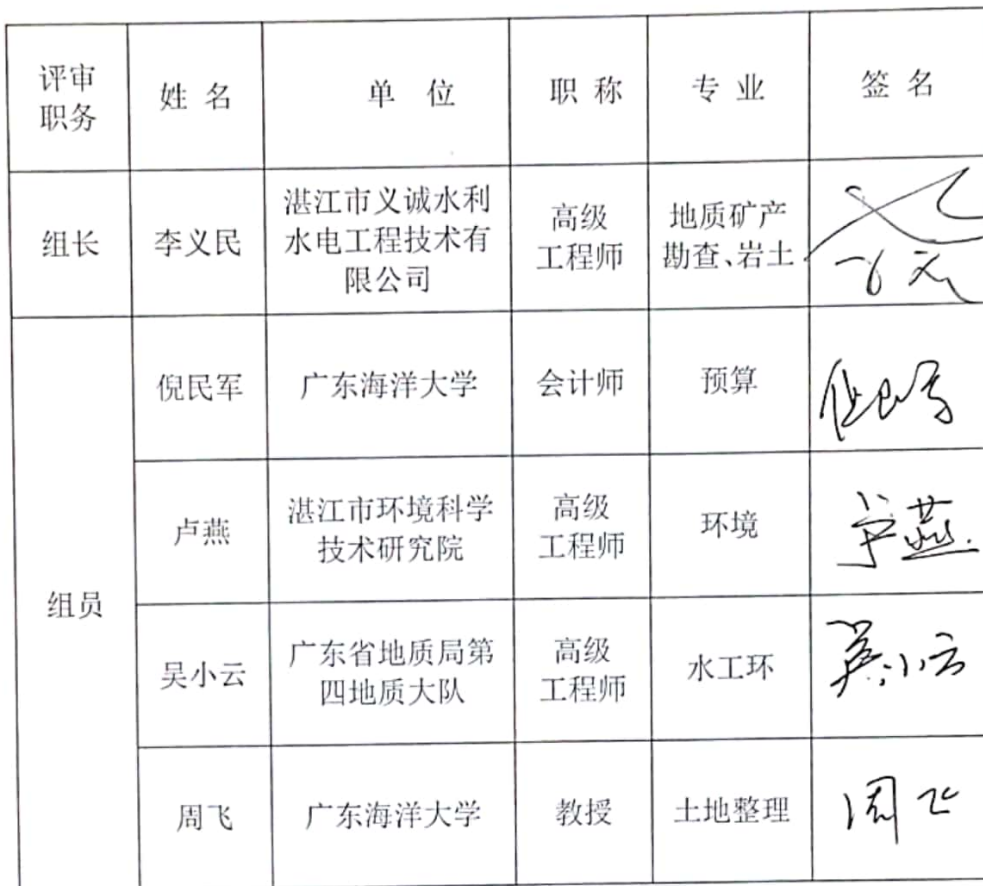 评审
职务
姓名
单位
职称
专业
签名
组长
李义民
湛江市义诚水利
水电工程技术有
限公司
高级
工程师
地质矿产
勘查、岩土
组员
倪民军
广东海洋大学
会计师
预算
倪民军
卢燕
湛江市环境科学
技术研究院
高级
工程师
环境
卢燕
吴小云
广东省地质局第
四地质大队
高级
工程师
水工环
吴小云
周飞
广东海洋大学
教授
土地整理
周飞